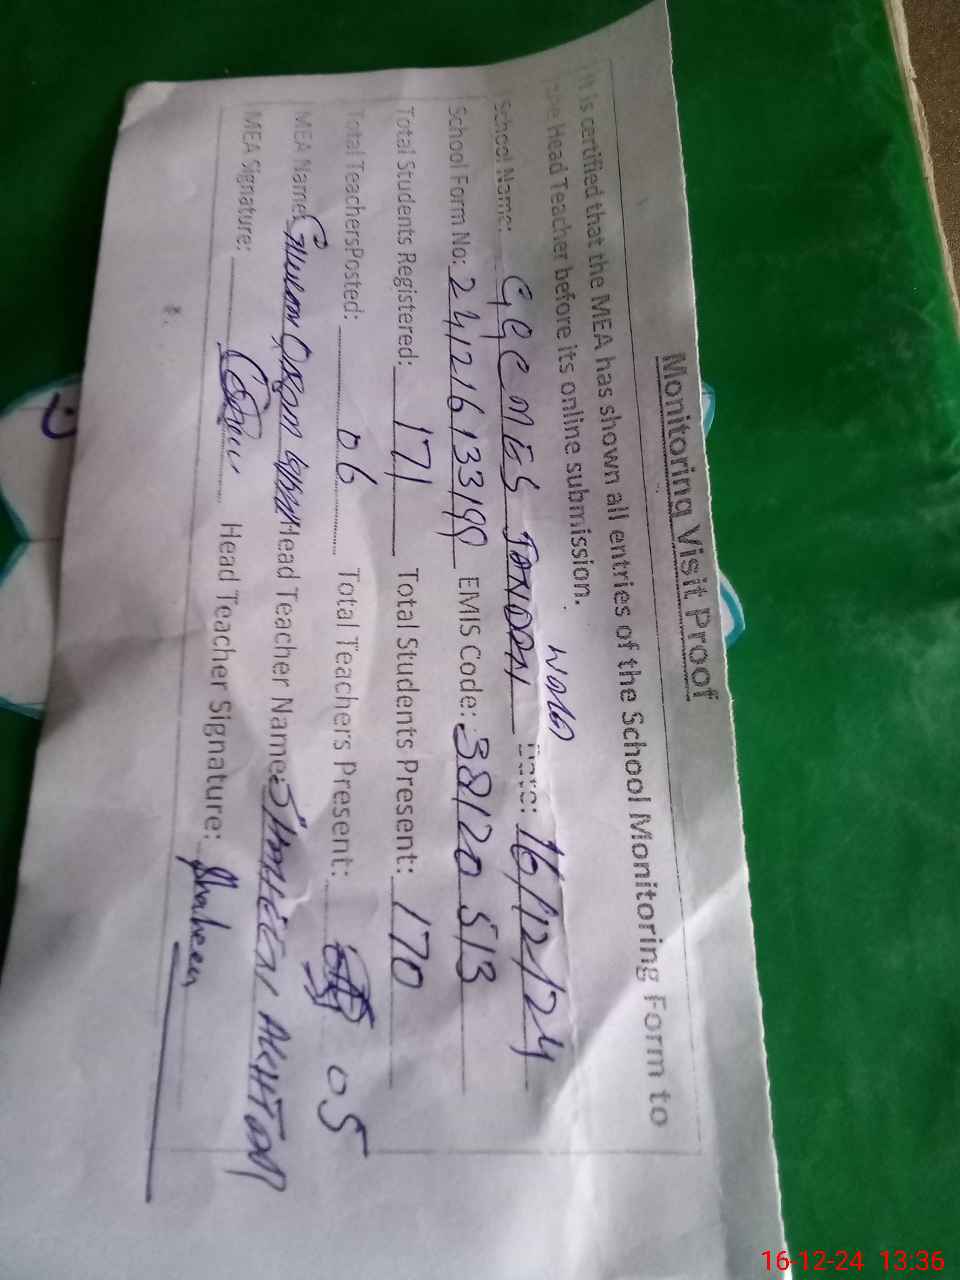 Monitoring Visit Proof
It is certified that the MEA has shown all entries of the School Monitoring Form to
the Head Teacher before its online submission.
School Name: GGCMES JANDAN WALA Date: 16/12/24
School Form No: EMIS Code: 38120513
Total Students Registered: 171 Total Students Present: 170
Total TeachersPosted: 06 Total Teachers Present: 05
MEA Name: Head Teacher Name: SHAHEEN AKHTAR
MEA Signature: Head Teacher Signature: Shaheen
16-12-24 13:36